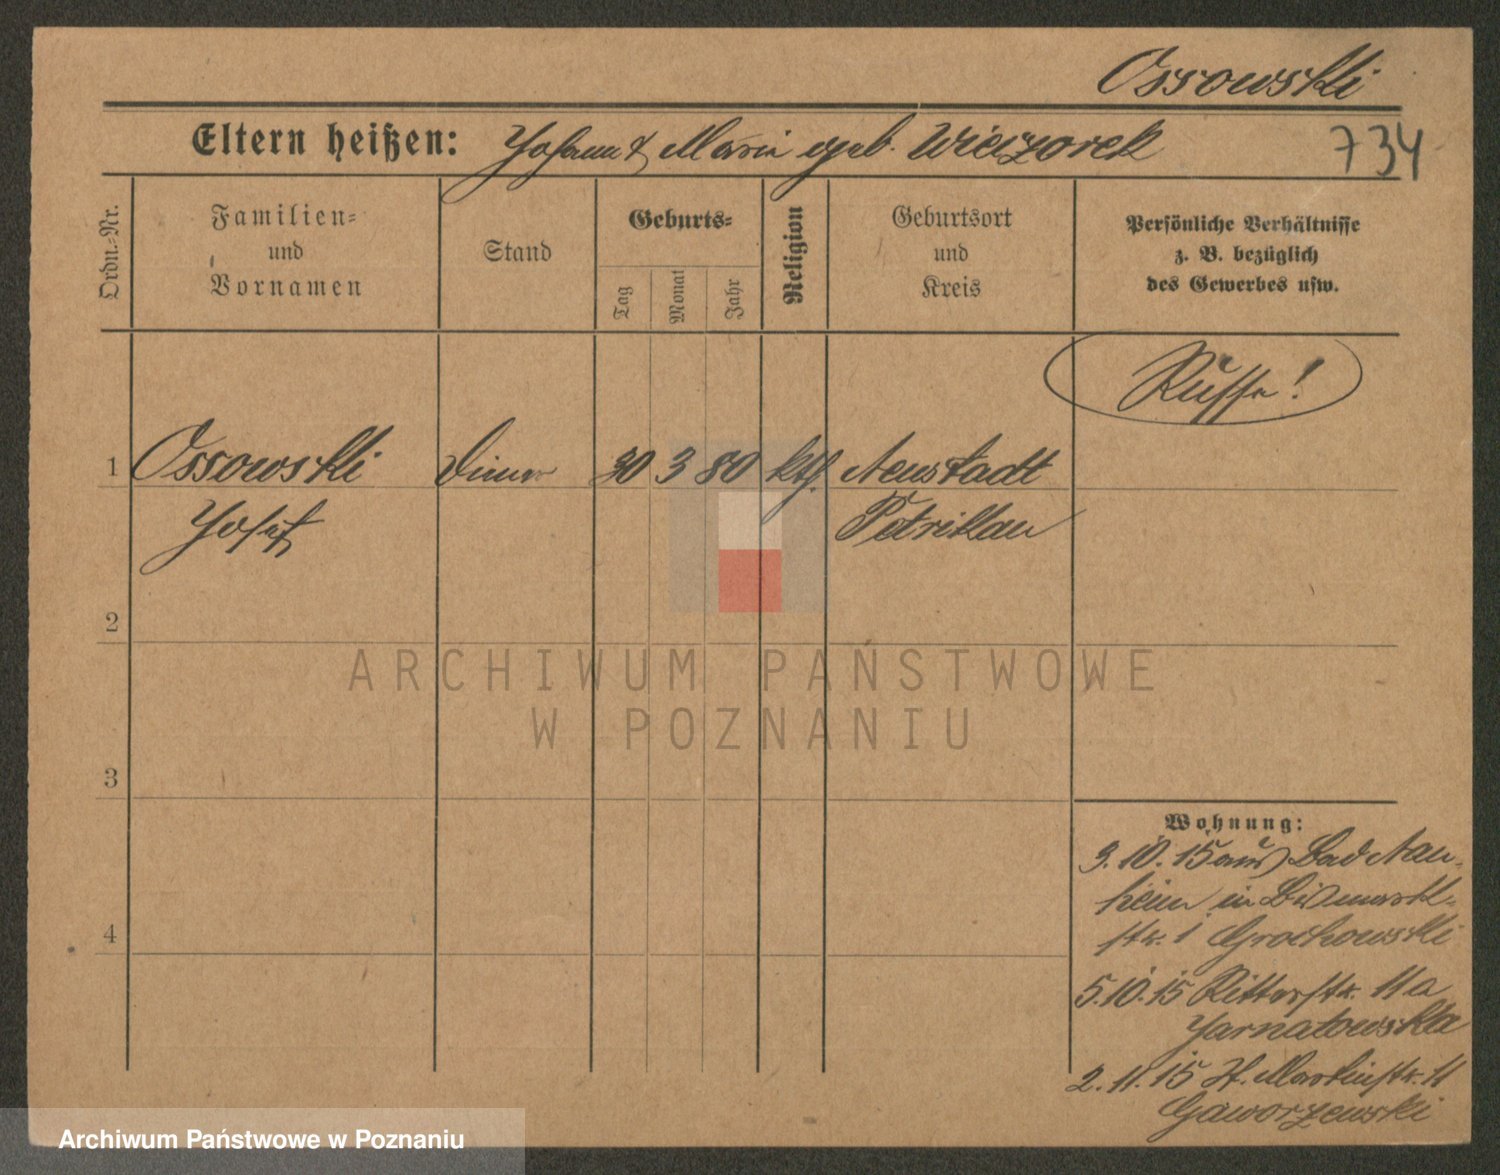 Ossowski
Eltern heißen: Johann & Marie geb. Wieczorek
734
Ordn.-Nr.
Familien-
und
Vornamen
Stand
Geburts-
Tag
Monat
Jahr
Religion
Geburtsort
und
Kreis
Persönliche Verhältnisse
z. B. bezüglich
des Gewerbes usw.
Russe!
1 Ossowski Diener 30 3 80 kth. Neustadt
Josef Petrikau
2
3
4
ARCHIWUM PAŃSTWOWE
W POZNANIU
Wohnung:
3.10.15 aus Bad Nau-
heim in Bismarck-
str. 1 Grochowski
5.10.15 Ritterstr. 11a
Jarnatowska
2.11.15 St. Martinstr. 11
Gaworzewski
Archiwum Państwowe w Poznaniu